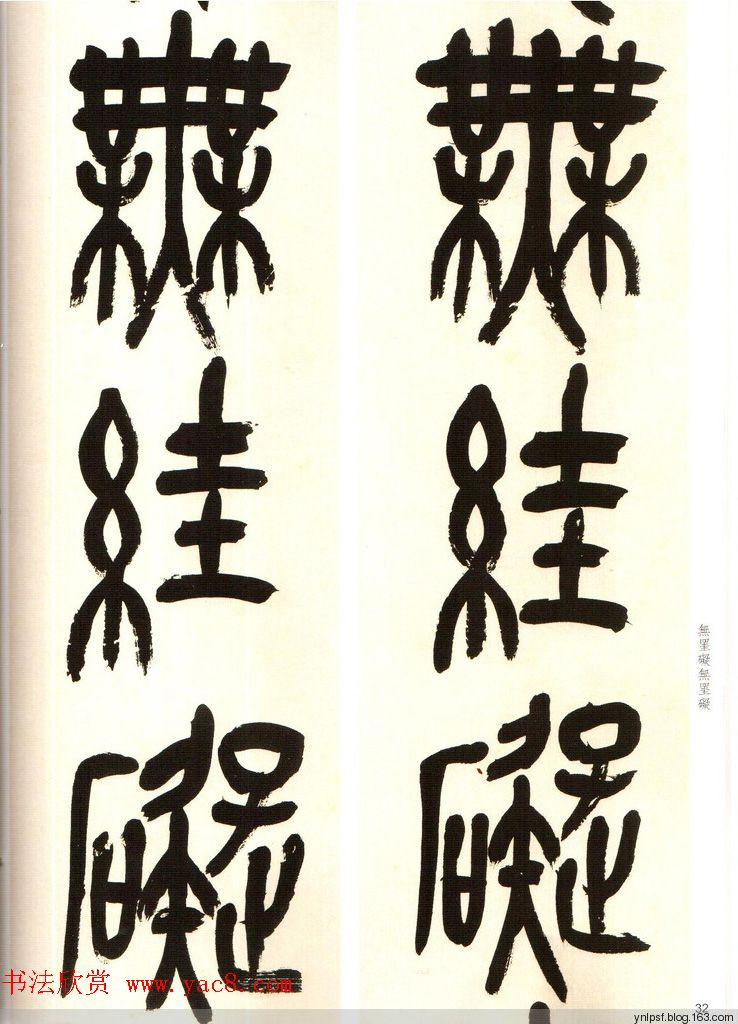 無絓礙
無絓礙
無罣礙無罣礙
32
书法欣赏 www.yac8.com
ynlpsf.blog.163.com